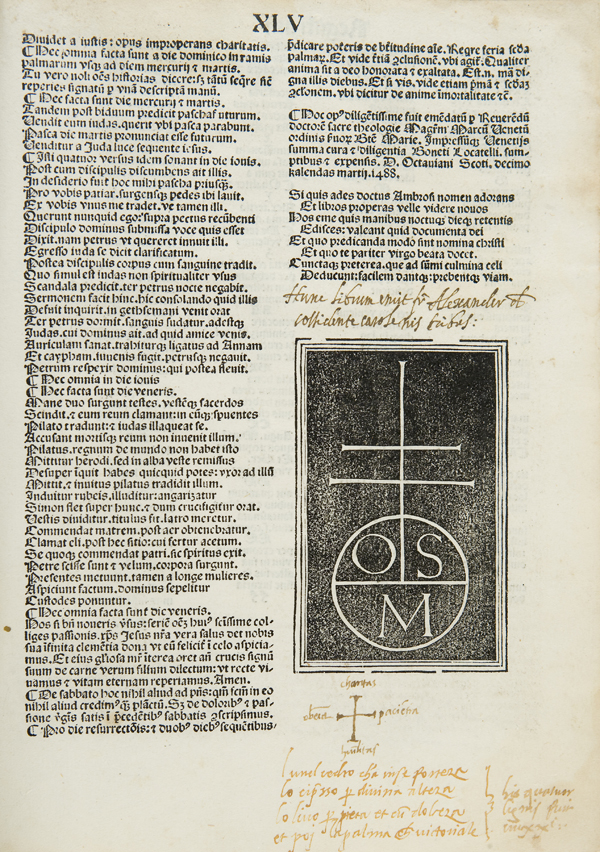 XLV
Diuidet a iustis: opus improperans charitatis.
¶ Hec omnia facta sunt a die dominico in ramis
palmarum vsqȝ ad diem mercurij ⁊ martis.
Tu vero noli oēs historias dicere: sȝ tātū seqr̄e sic̄
reperies signatū ꝑ vnā descriptā manū.
¶ Hec facta sunt die mercurij ⁊ martis.
Tandem post biduum predicit pascha futurum.
Vendit eum iudas. querit vbi pasca parabunt.
Pasca die martis pronunciat esse futurum.
Venditur a Juda luce sequente iesus.
¶ Isti quatuor versus idem sonant in die iouis.
Post cum discipulis discumbens ait illis.
In desiderio fuit hoc mihi pascha priusqȝ.
Pro vobis patiar. surgensqȝ pedes ibi lauit.
Ex vobis vnus me tradet. ve tamen illi.
Querunt nunquid ego: supra pectus recūbenti
Discipulo dominus submissa voce quis esset
Dixit. nam petrus vt quereret innuit illi.
Egresso iuda se dicit clarificatum.
Postea discipulis corpus cum sanguine tradit.
Quo simul est iudas non spiritualiter vsus
Scandala predicit. ter petrus nocte negabit.
Sermonem facit hinc. his consolando quid illis
Defuit inquirit. in gethsemani venit orat
Ter petrus dormit. sanguis sudatur. adestqȝ
Judas. cui dominus ait. ad quid amice venis.
Auriculam sanat. trahiturqȝ ligatus ad Annam
Et caypham. iuuenis fugit. petrusqȝ negauit.
Petrum respexit dominus: qui postea fleuit.
¶ Hec omnia in die iouis
¶ Hec facta sunt die veneris.
Mane duo surgunt testes. vestesqȝ sacerdos
Scindit. ⁊ eum reum clamant: in eūqȝ spuentes
Pilato tradunt: ⁊ iudas illaqueat se.
Accusant mortisqȝ reum non inuenit illum.
Pilatus. regnum de mundo non habet isto
Mittitur herodi. sed in alba veste remissus
Desuper īquit habes quicquid potes: vxor ad illū
Mittit. ⁊ inuitus pilatus tradidit illum.
Induitur rubeis. illuditur: angarizatur
Simon flet super hunc. ⁊ dum crucifigitur orat.
Vestis diuiditur. titulus fit. latro meretur.
Commendat matrem. post aer obtenebratur.
Clamat eli. post hec sitio: cui fertur acetum.
Se quoqȝ commendat patri. sic spiritus exit.
Petre scisse sunt ⁊ velum. corpora surgunt.
Presentes metuunt. tamen a longe mulieres.
Aspiciunt factum. dominus sepelitur
Custodes ponuntur.
¶ Hec omnia facta sunt die veneris.
Hos si bn̄ noueris v̓sus: seriē oēȝ huiꝰ scīssime col-
liges passionis. xp̄s Jesus nr̄a vera salus det nobis
sua īfinita clemētia dona vt cū felicit̓ ī celo aspicia-
mus. Et eius gl̓iosa mr̄ īterea oret an̄ crucis signū
suum de carne verum filium dilectum: vt recte vi-
uamus ⁊ vitam eternam reperiamus. Amen.
¶ De sabbato hoc nihil aliud ad pn̄s: qm̄ sicīn in eo
nihil aliud credim̓ qȝ plactū. Sȝ de dolorib̓ ⁊ pas-
sione v̓gīs satis ī p̄cedētib̓ sabbatis ᵹscripsimus.
¶ Pro die resurrectōis: ⁊ duob̓ dieb̓ sequētibus.
p̄dicare poteris de bt̄itudine aīe. Reqr̄e feria scd̄a
palmaꝝ. Et vide t̄tiā ᵹclusionē. vbi agit̓. Qualiter
anima sit a deo honorata ⁊ exaltata. Est. n. mā di-
gna illis diebus. Et si vis. vide etiam p̄mā ⁊ sc̄daȝ
ᵹclonem. vbi dicitur de anime imortalitate ⁊c̄.
¶ Hoc opꝰ diligētissime fuit emēdatū ꝑ Reuerēdū
doctorē sacre theologie Magr̄m Marcū Venetū
ordinis ẜuoꝝ Btē Marie. Impressūqȝ Venetijs
summa cura ⁊ diligentia Boneti Locatelli. sum-
ptibus ⁊ expensis. D. Octauiani Scoti. decimo
kalendas martij. 1488.
Si quis ades doctus Ambrosi nomen adorans
Et libros properas velle videre nouos
Hos eme quis manibus noctuqȝ dieqȝ retentis
Edisces: valeant quid documenta dei
Et quo predicanda modo sint nomina christi
Et quo te pariter virgo beata docet.
Cunctaqȝ preterea. que ad sūmi culmina celi
Deducunt: facilem dantqȝ: prebentqȝ viam.
Hunc librum emit fr̄ Alexander
O S
M
charitas
obēia paciētia
humilitas